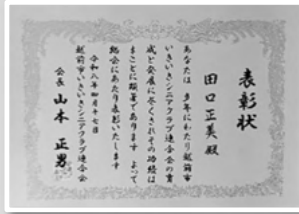 表彰状
田口正美殿
あなたは多年にわたり越前市
いきいきシニアクラブ連合会の育
成と発展に尽くされその功績は
まことに顕著であります よって
総会にあたり表彰いたします
令和八年四月十七日
越前市いきいきシニアクラブ連合会
会長 山本正男